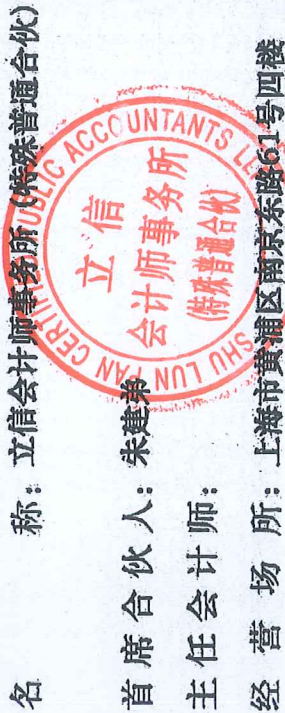 名 称：立信会计师事务所（特殊普通合伙）
首席合伙人：朱建弟
主任会计师：
经营场所：上海市黄浦区南京东路61号四楼
SHU LUN PAN CERTIFIED PUBLIC ACCOUNTANTS
立信
会计师事务所
(特殊普通合伙)